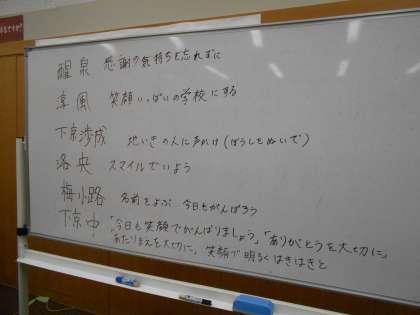 醒泉 感謝の気持ちを忘れずに
淳風 笑顔いっぱいの学校にする
下京渉成 地いきの人に声かけ(ぼうしをぬいで)
洛央 スマイルでいよう
梅小路 名前をよぶ 今日もがんばろう
下京中 「今日も笑顔でがんばりましょう」「ありがとうを大切に」
あたりまえを大切に」 笑顔で明るくはきはきと